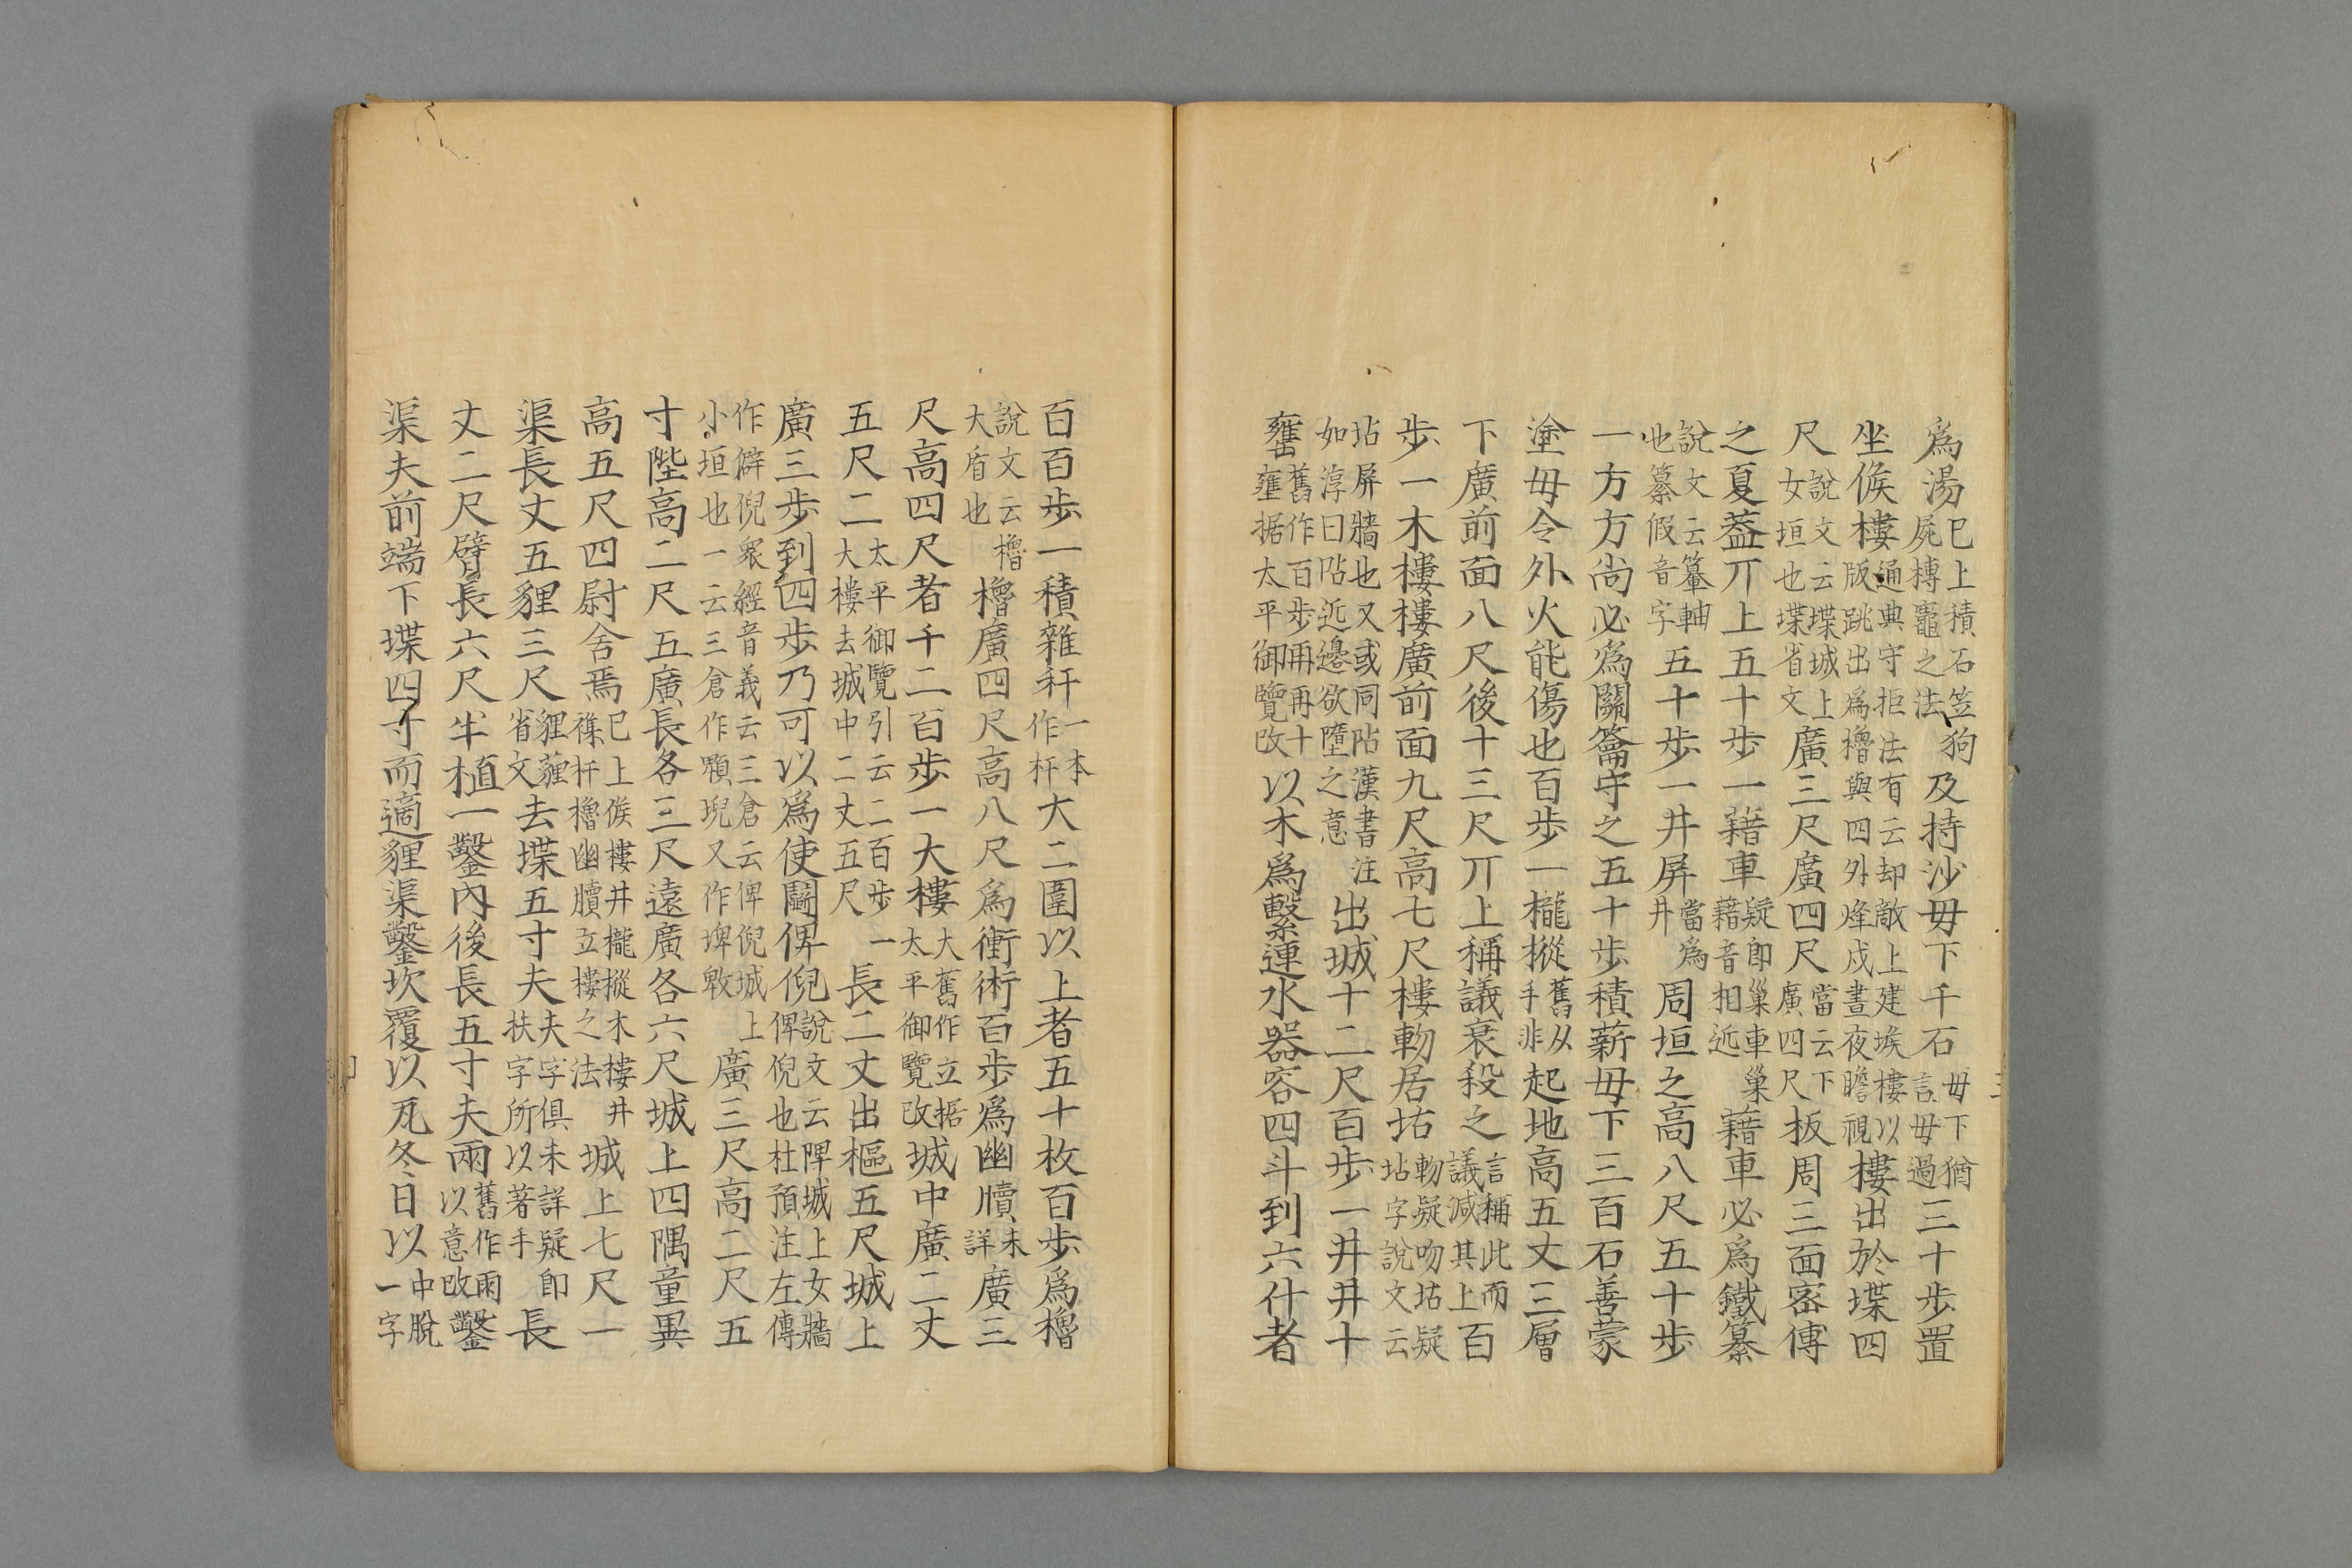 爲湯已上積石笠狗屍槫竈之法及持沙毋下千石毋下猶言毋過三十步置
坐候樓通典守拒法有云却敵上建堠樓以版跳出爲櫓與四外烽戍晝夜瞻視樓出於堞四
尺說文云堞城上女垣也堞省文廣三尺廣四尺當云下廣四尺板周三面密傳
之夏蓋丌上五十步一藉車疑卽巢車巢藉音相近藉車必爲鐵纂
說文云䡓軸也纂假音字五十步一井屏當爲井周垣之高八尺五十步
一方方尚必爲關籥守之五十步積薪毋下三百石善蒙
塗毋令外火能傷也百步一櫳樅舊从手非起地高五丈三層
下廣前面八尺後十三尺丌上稱議衰殺之言稱此而議減其上百
步一木樓樓廣前面九尺高七尺樓軔居坫軔疑吻坫疑坫字說文云
坫屏牆也又或同阽漢書注如淳曰阽近邊欲墮之意出城十二尺百步一井井十
罋舊作百步再再十壅据太平御覽改以木爲繫連水器容四斗到六什者
百百步一積雜秆一本作杆大二圍以上者五十枚百步爲櫓
說文云櫓大盾也櫓廣四尺高八尺爲衝術百步爲幽牘未詳廣三
尺高四尺者千二百步一大樓大舊作立据太平御覽改城中廣二丈
五尺二太平御覽引云二百步一大樓去城中二丈五尺長二丈出樞五尺城上
廣三步到四步乃可以爲使鬭俾倪說文云陴城上女牆俾倪也杜預注左傳
作僻倪衆經音義云三倉云俾倪城上小垣也一云三倉作顊堄又作埤㪏廣三尺高二尺五
寸陛高二尺五廣長各三尺遠廣各六尺城上四隅童異
高五尺四尉舍焉已上候樓井櫳樅木樓井襍杆櫓幽牘立樓之法城上七尺一
渠長丈五貍三尺貍薶省文去堞五寸夫夫字俱未詳疑卽扶字所以著手長
丈二尺臂長六尺半植一鑿內後長五寸夫兩舊作雨以意改鑿
渠夫前端下堞四寸而適貍渠鑿坎覆以瓦冬日以中脫一字